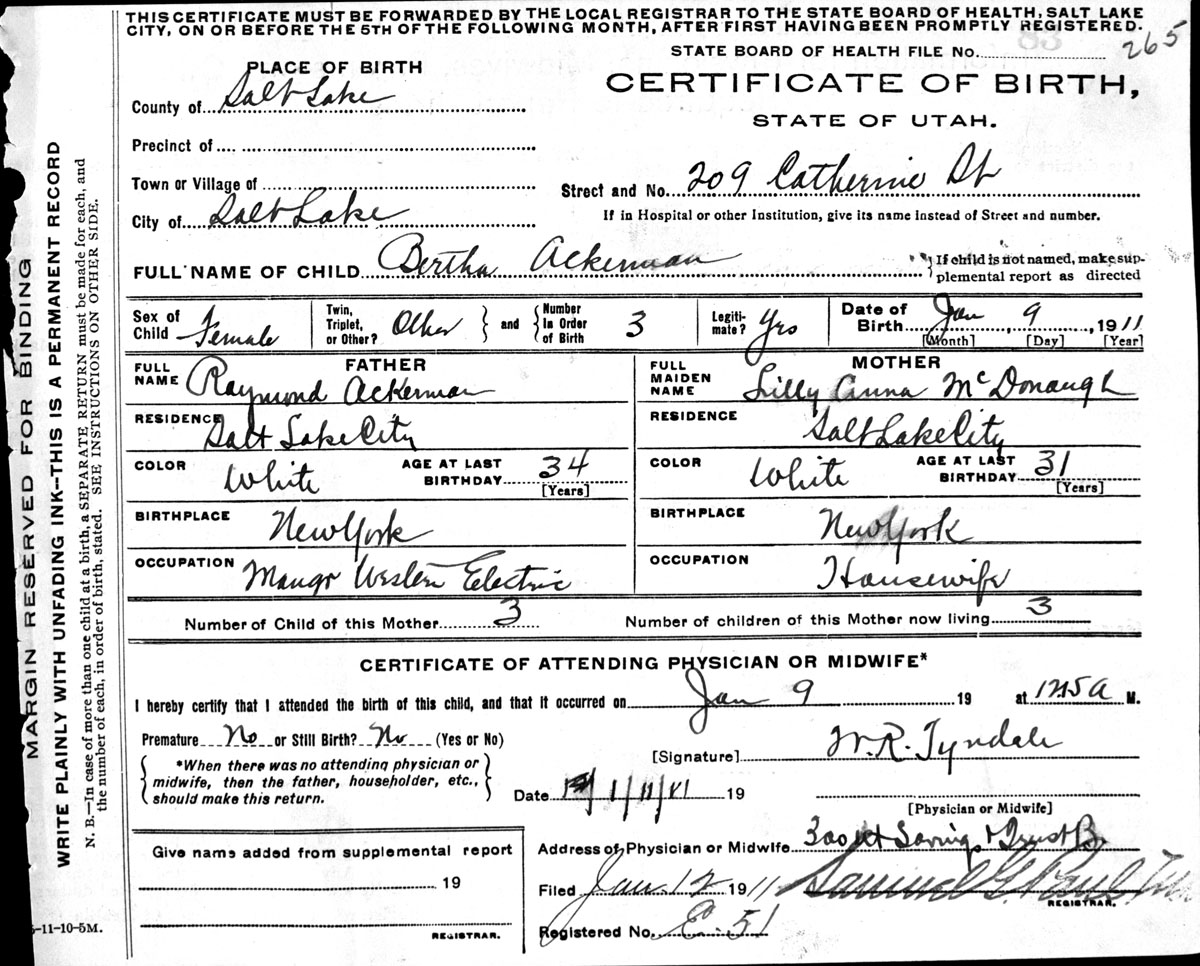 THIS CERTIFICATE MUST BE FORWARDED BY THE LOCAL REGISTRAR TO THE STATE BOARD OF HEALTH, SALT LAKE
CITY, ON OR BEFORE THE 5TH OF THE FOLLOWING MONTH, AFTER FIRST HAVING BEEN PROMPTLY REGISTERED.
83
265
STATE BOARD OF HEALTH FILE No.
PLACE OF BIRTH
CERTIFICATE OF BIRTH,
STATE OF UTAH.
County of Salt Lake
Precinct of
Town or Village of
Street and No. 209 Catherine St
City of Salt Lake
If in Hospital or other Institution, give its name instead of Street and number.
FULL NAME OF CHILD Bertha Ackerman
If child is not named, make sup-
plemental report as directed
Sex of Child Female
Twin, Triplet, or Other? Other and Number in Order of Birth 3
Legiti-mate? Yes
Date of Birth Jan 9, 1911
[Month] [Day] [Year]
FATHER
FULL NAME Raymond Ackerman
RESIDENCE Salt Lake City
COLOR White AGE AT LAST BIRTHDAY 34
[Years]
BIRTHPLACE New York
OCCUPATION Mangr Westen Electric
MOTHER
FULL MAIDEN NAME Lilly Anna McDonaugh
RESIDENCE Salt Lake City
COLOR White AGE AT LAST BIRTHDAY 31
[Years]
BIRTHPLACE New York
OCCUPATION Housewife
Number of Child of this Mother 3 Number of children of this Mother now living 3
CERTIFICATE OF ATTENDING PHYSICIAN OR MIDWIFE*
I hereby certify that I attended the birth of this child, and that it occurred on Jan 9 19 at 1215 A M.
Premature No or Still Birth? No (Yes or No)
[Signature] W.R. Tyndale
*When there was no attending physician or
midwife, then the father, householder, etc.,
should make this return.
Date 1/11/11 19
[Physician or Midwife]
Give name added from supplemental report
19
REGISTRAR.
Address of Physician or Midwife Savings & Trust
Filed Jan. 12 1911 Samuel G. Paul
REGISTRAR.
Registered No. 51
MARGIN RESERVED FOR BINDING
WRITE PLAINLY WITH UNFADING INK—THIS IS A PERMANENT RECORD
N. B.—In case of more than one child at a birth, a SEPARATE RETURN must be made for each, and
the number of each, in order of birth, stated. SEE INSTRUCTIONS ON OTHER SIDE.
-11-10-5M.